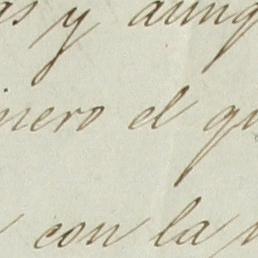 as y aunq
inero el qu
con la